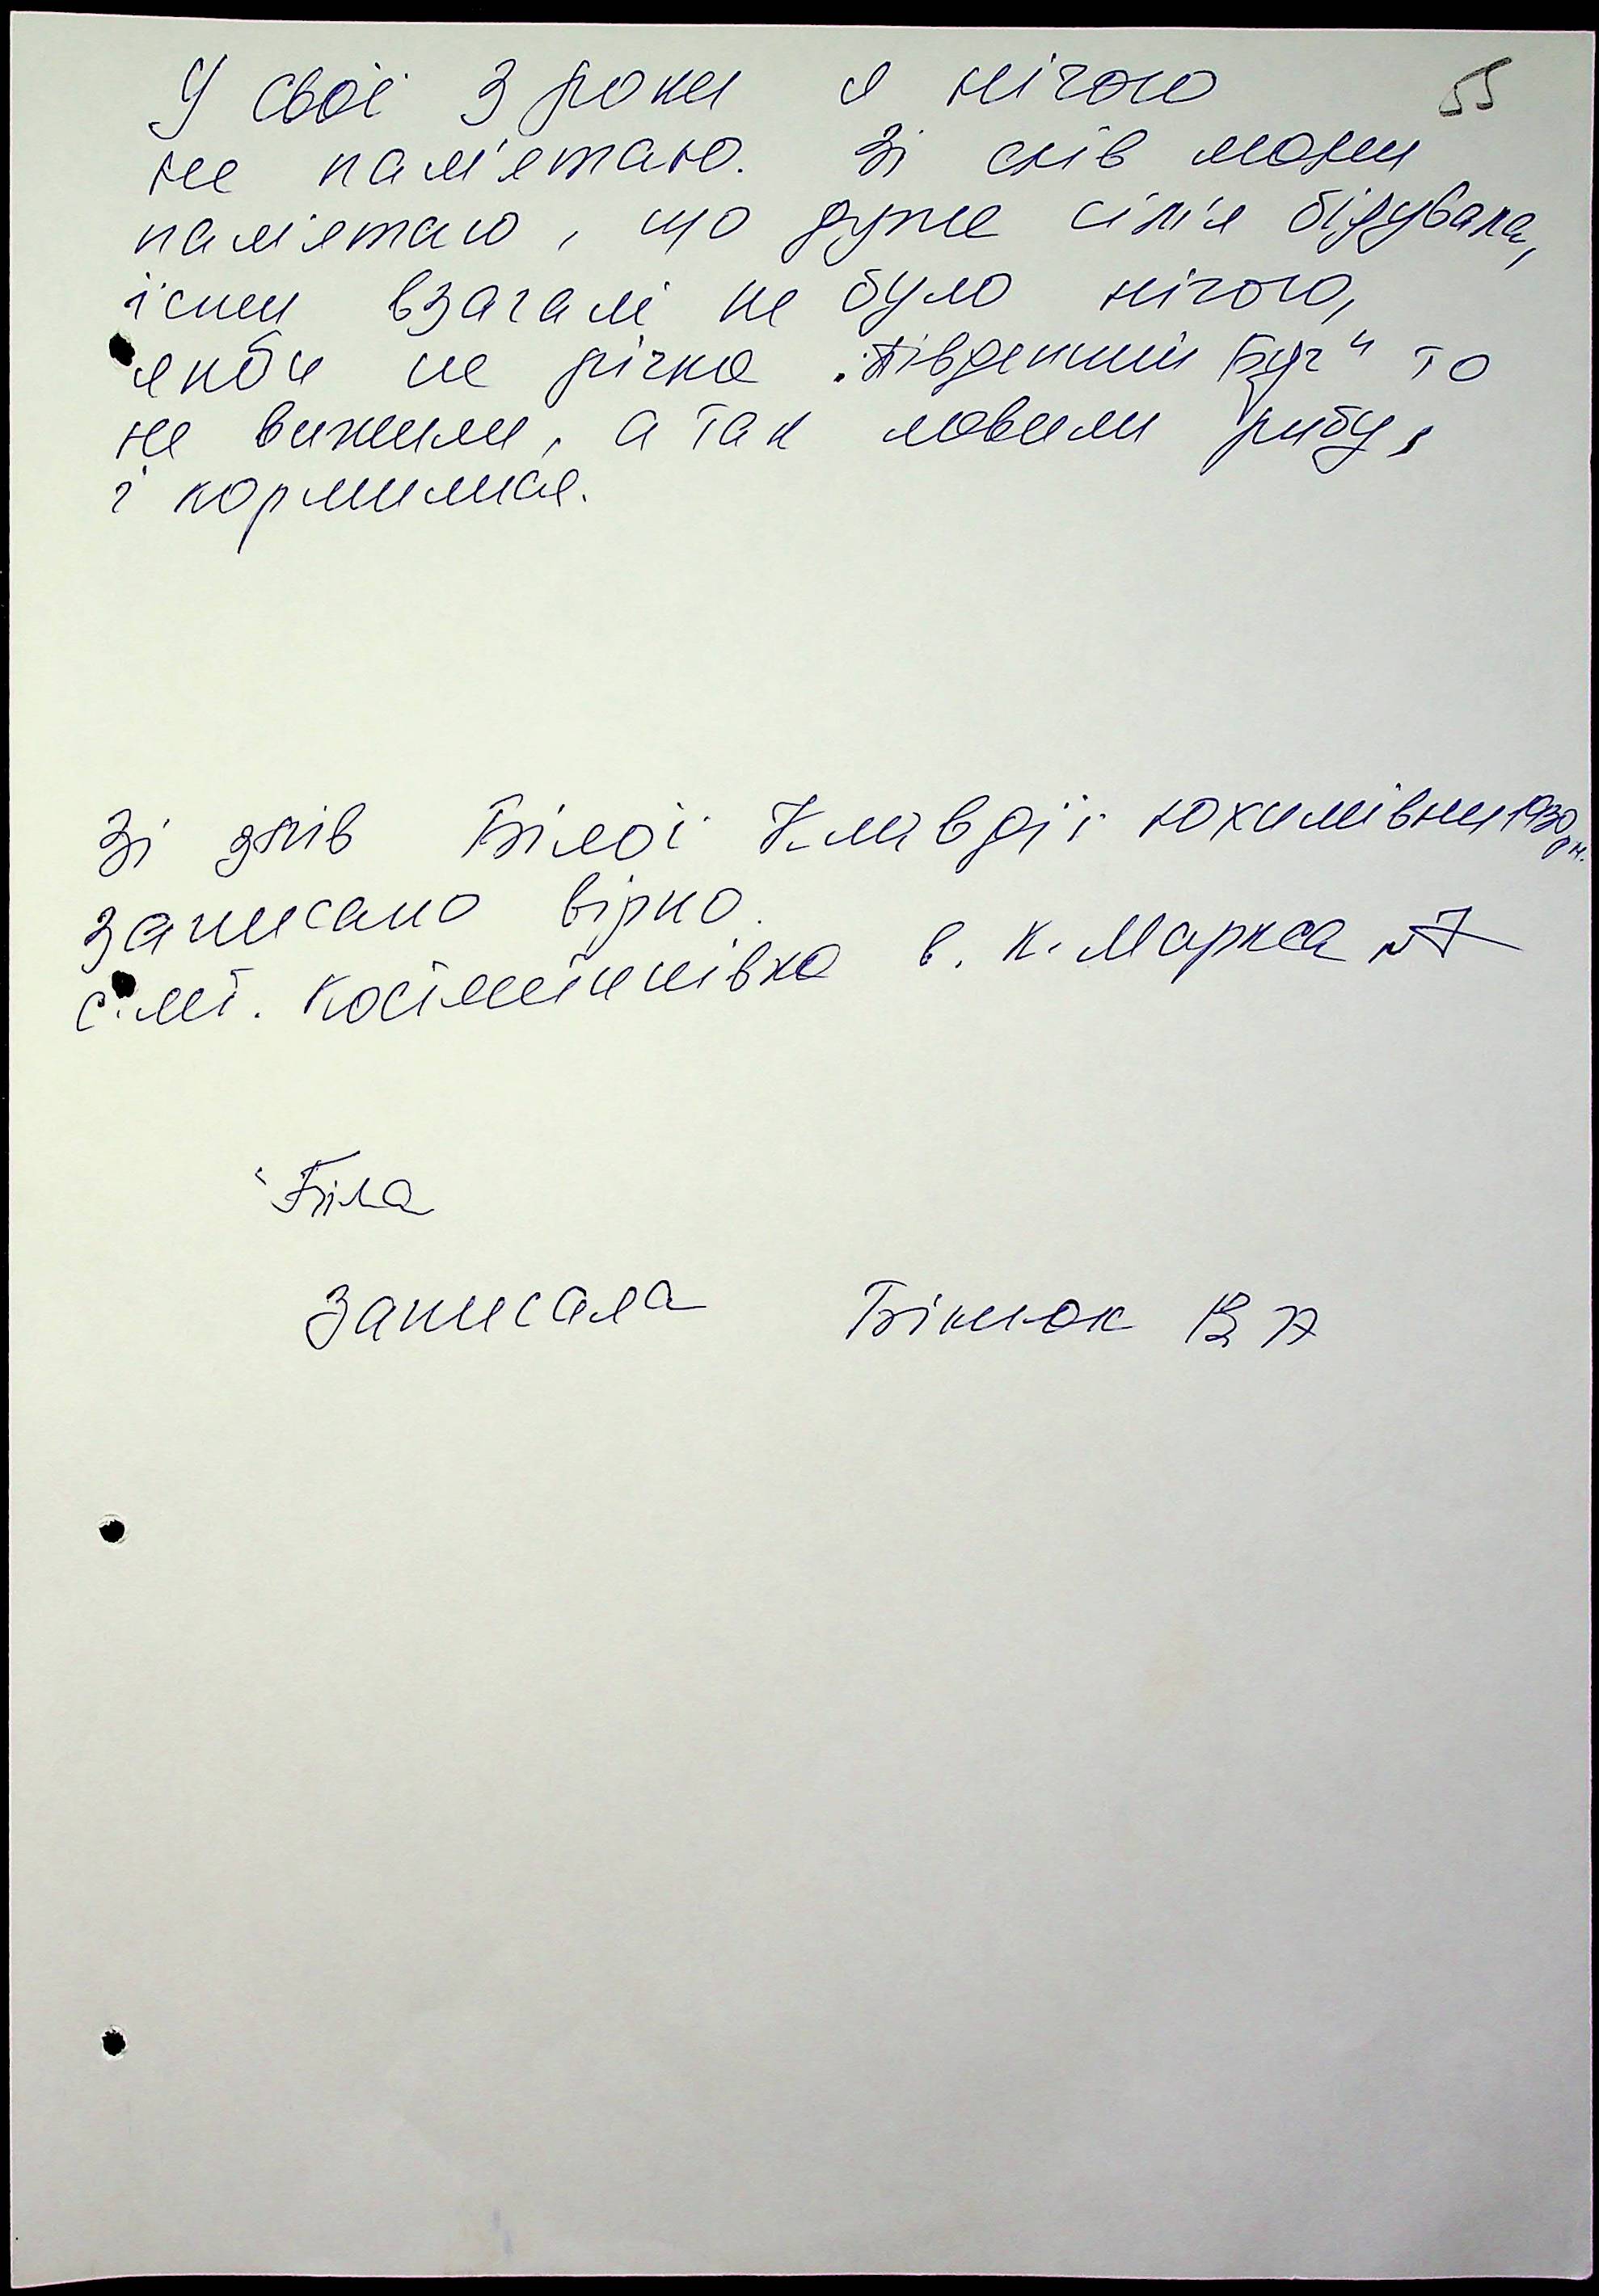 У свої 3 роки я нічого
55
не пам'ятаю. Зі слів мами
пам'ятаю, що дуже сім'я бідувала,
їсти взагалі не було нічого,
якби не річка „Південний Буг" то
не вижили, а так ловили рибу,
і кормилися.
Зі слів Білої Клавдії Юхимівни 1930 р.н.
записано вірно.
смт. Костянтинівка в. К. Маркса №7
Біла
Записала Бінюк В